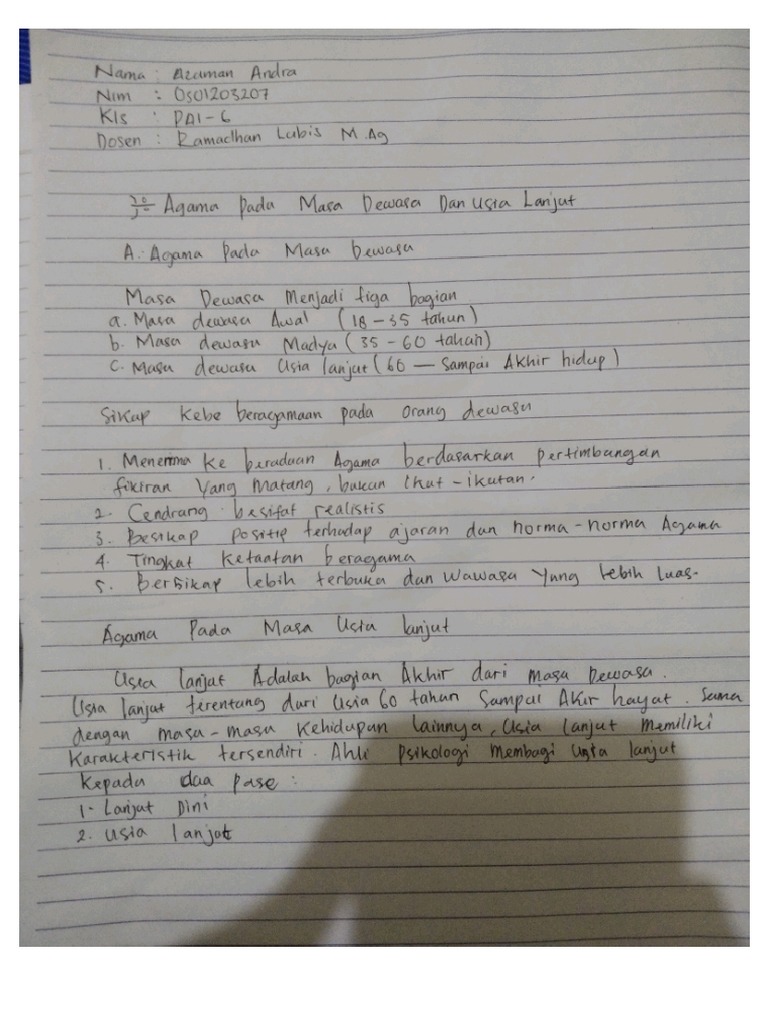 Nama : Azuman Andra
Nim : 0501203207
Kls : PAI-6
Dosen : Ramadhan Lubis M.Ag
Agama pada Masa Dewasa Dan Usia Lanjut
A. Agama pada Masa Dewasa
Masa Dewasa Menjadi tiga bagian
a. Masa dewasa Awal (18-35 tahun)
b. Masa dewasa Madya (35-60 tahun)
c. Masa dewasa Usia lanjut (60 — Sampai Akhir hidup)
Sikap Kebe beragamaan pada orang dewasa
1. Menerima Ke beradaan Agama berdasarkan pertimbangan
fikiran yang matang, bukan Ikut-ikutan.
2. Cendrang besifat realistis
3. Besikap positip terhadap ajaran dan norma-norma Agama
4. Tingkat Ketaatan beragama
5. Bersikap lebih terbuka dan wawasa yang lebih luas.
Agama Pada Masa Usia lanjut
Usia lanjut Adalah bagian Akhir dari masa Dewasa.
Usia lanjut terentang dari Usia 60 tahun Sampai Akir hayat. Sama
dengan masa-masa Kehidupan lainnya, Usia lanjut memiliki
Karakteristik tersendiri. Ahli Psikologi membagi Usia lanjut
Kepada dua pase :
1. Lanjut Dini
2. Usia lanjut